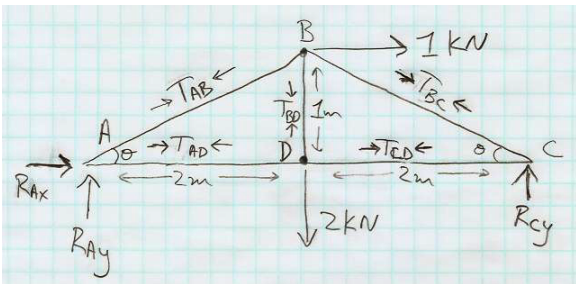 B
1 kN
TAB
TBC
TBD
1m
A
θ
TAD
D
TCD
θ
C
RAx
2m
2m
RAy
2kN
RCy